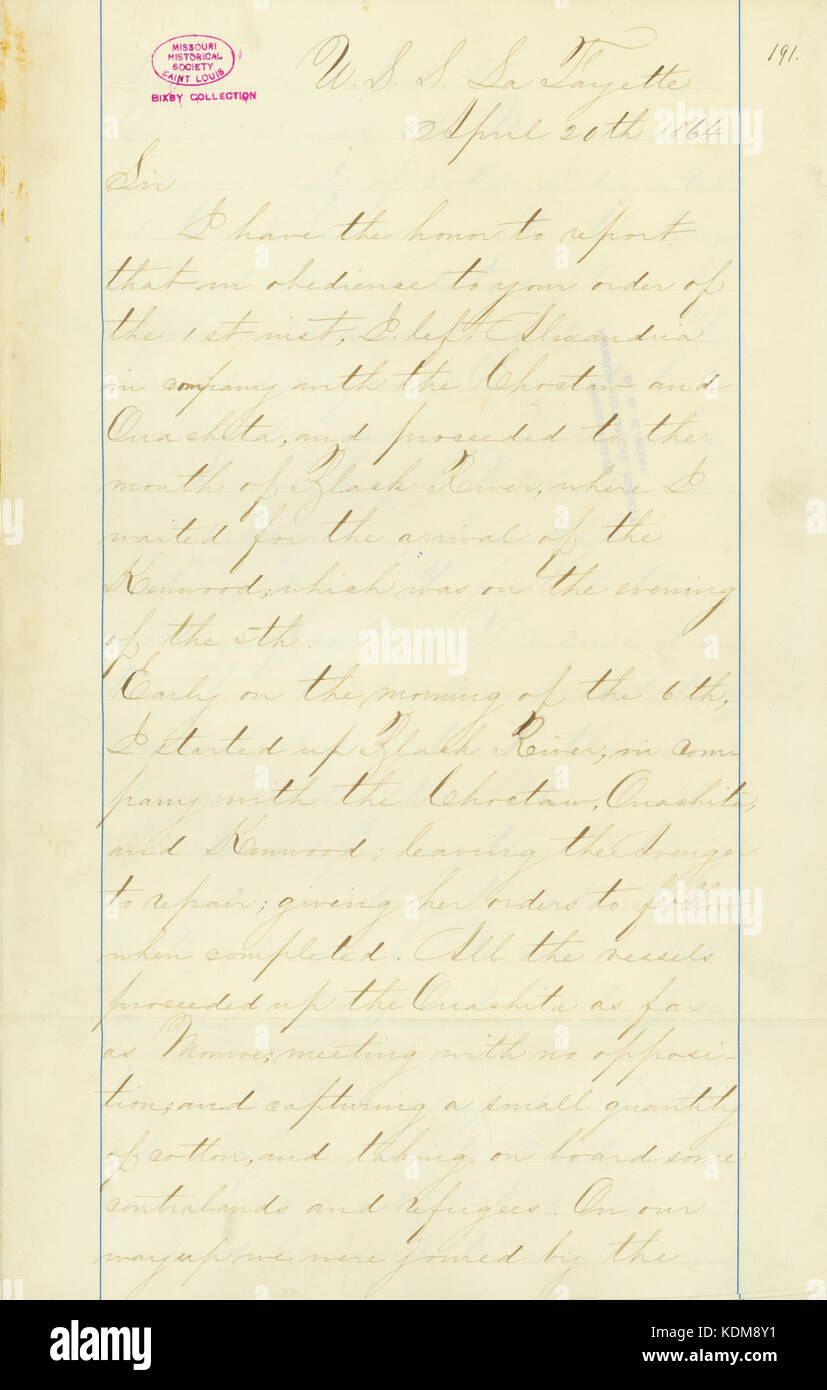 MISSOURI
HISTORICAL
SOCIETY
SAINT LOUIS
BIXBY COLLECTION
191.
U. S. S. La Fayette
April 20th 1864
Sir
I have the honor to report
that in obedience to your order of
the 1st inst, I left Alexandria
in company with the Choctaw and
Ouachita, and proceeded to the
mouth of Black River, where I
waited for the arrival of the
Kenwood, which was on the evening
of the 5th.
Early on the morning of the 6th,
I started up Black River, in com
pany with the Choctaw, Ouachita,
and Kenwood; leaving the Avenger
to repair; giving her orders to follow
when completed. All the vessels
proceeded up the Ouachita as far
as Monroe; meeting with no opposi-
tion, and capturing a small quantity
of cotton, and taking on board some
contrabands and refugees. On our
way up we were joined by the
alamy
alamy stock photo
Image ID: KDM8Y1
www.alamy.com